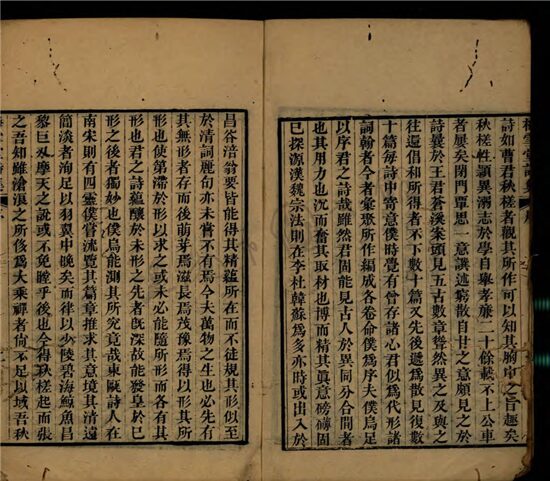 詩如曹君秋槎者觀其所作可以知其胸中之旨趣矣
秋槎性穎異溺志於學自舉孝廉二十餘載不上公車
者屢矣閉門覃思一意譔述窮散自甘之意頗見之於
詩曩於王君蒼溪案頭見五古數章聳然異之及與之
往還倡和所得者不下數十篇又先後遞爲散見復數
十篇每詩中寄意僕時覺有曾存諸心君似爲代形諸
詞翰者今者彙聚所作編成各卷命僕爲序夫僕烏足
以序君之詩哉雖然君固能見古人於異同分合間者
也其用力也沉而奮其取材也博而精其眞意磅礴固
已探源漢魏宗法則在李杜韓蘇爲多亦時或出入於
昌谷涪翁要皆能得其精蘊所在而不徒規其形似至
於清詞麗句亦未嘗不有焉今夫萬物之生也必先有
其無形者存而後萌芽焉滋長焉茂豫焉得以形其所
形也使第滯於形以求之或未必能隨所形而各有其
形也君之詩蘊釀於未形之先者旣深故能發皇於已
形之後者獨妙也僕烏能測其所究竟哉東甌詩人在
南宋則有四靈僕嘗流覽其篇章推求其意境其清遠
簡淡者洵足以羽翼中晚矣而律以少陵碧海鯨魚昌
黎巨刃摩天之說或不免瞠乎後也今得秋槎起而張
之吾知雖滄溟之所侈爲大乘禪者尙不足以域吾秋